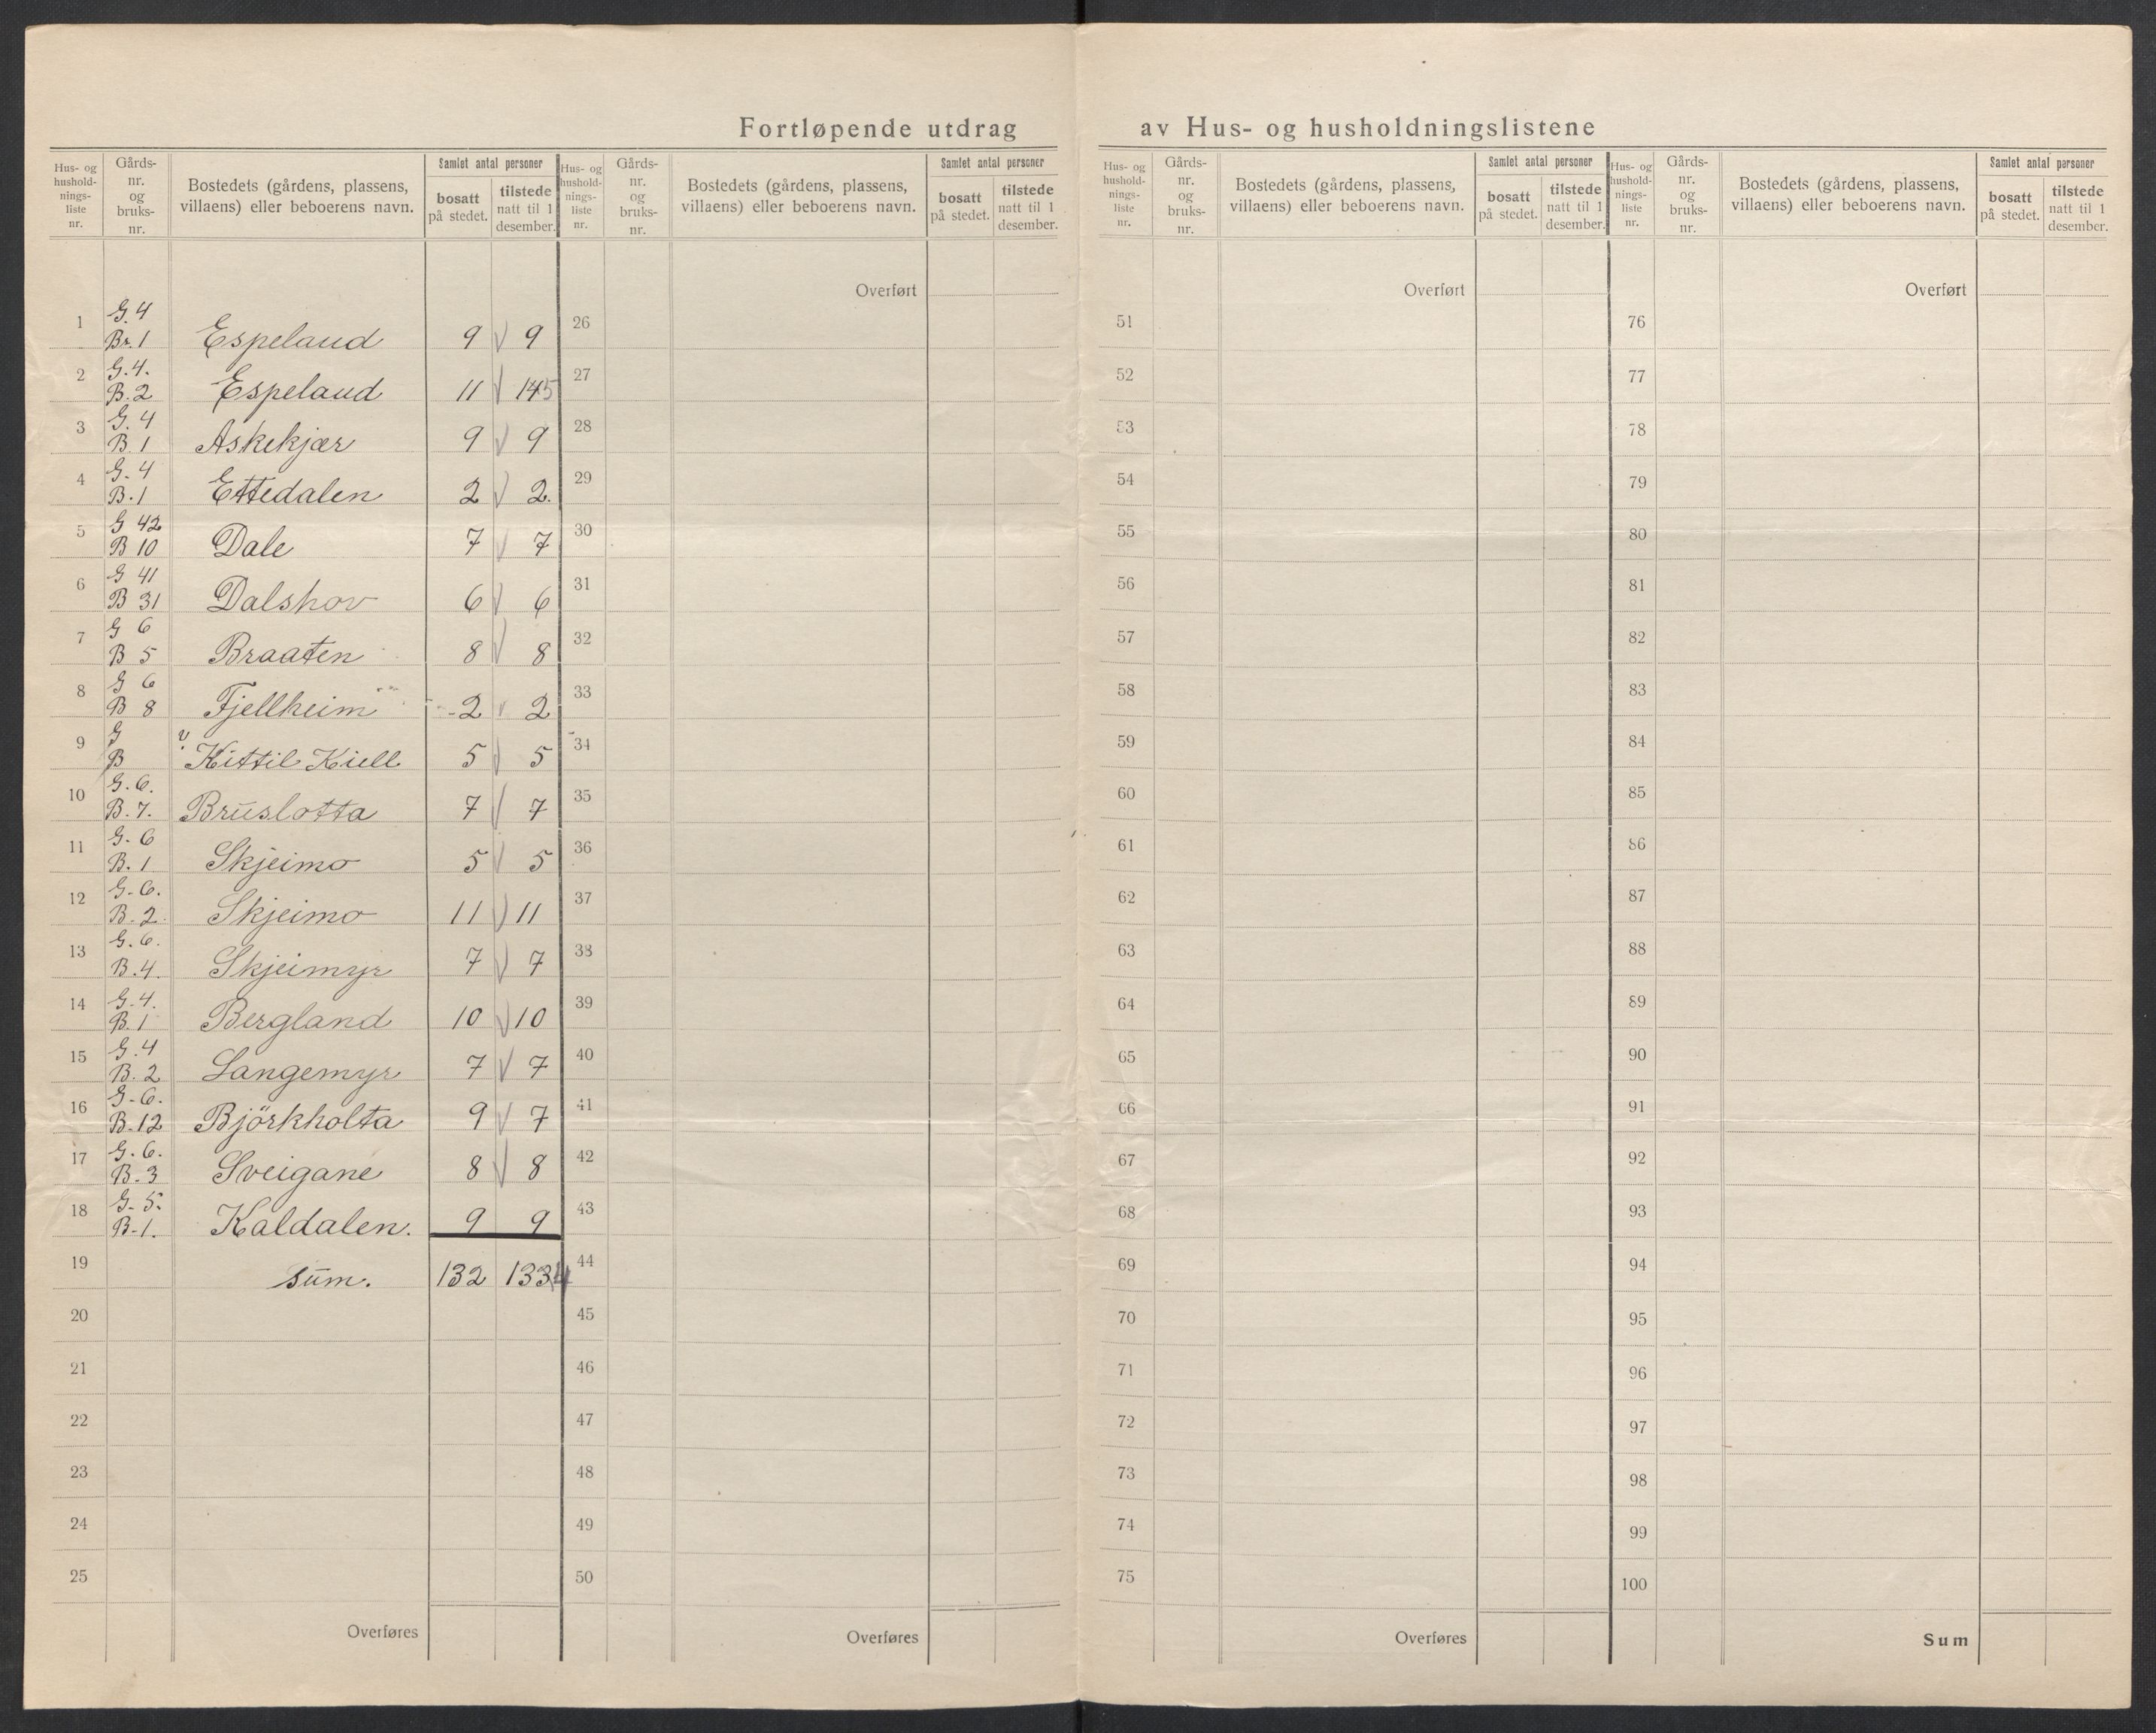 Fortløpende utdrag av Hus- og husholdningslistene
Hus- og hushold- nings- liste nr. Gårds- nr. og bruks- nr. Bostedets (gårdens, plassens, villaens) eller beboerens navn. Samlet antal personer bosatt på stedet. tilstede natt til 1 desember.
Hus- og hushold- nings- liste nr. Gårds- nr. og bruks- nr. Bostedets (gårdens, plassens, villaens) eller beboerens navn. Samlet antal personer bosatt på stedet. tilstede natt til 1 desember.
Hus- og hushold- nings- liste nr. Gårds- nr. og bruks- nr. Bostedets (gårdens, plassens, villaens) eller beboerens navn. Samlet antal personer bosatt på stedet. tilstede natt til 1 desember.
Hus- og hushold- nings- liste nr. Gårds- nr. og bruks- nr. Bostedets (gårdens, plassens, villaens) eller beboerens navn. Samlet antal personer bosatt på stedet. tilstede natt til 1 desember.
Overført Overført Overført
1 G. 4 Br. 1 Espeland 9 9 26 51 76
2 G. 4. B. 2 Espeland 11 145 27 52 77
3 G. 4 B 1 Askekjær 9 9 28 53 78
4 G. 4 B. 1 Ettedalen 2 2. 29 54 79
5 G 42 B 10 Dale 7 7 30 55 80
6 G 41 B 31 Dalshov 6 6 31 56 81
7 G 6 B 5 Braaten 8 8 32 57 82
8 G 6 B 8 Fjellheim 2 2 33 58 83
9 G B Kittil Kiell 5 5 34 59 84
10 G. 6. B. 7. Bruslotta 7 7 35 60 85
11 G. 6 B. 1 Skjeimo 5 5 36 61 86
12 G. 6. B. 2. Skjeimo 11 11 37 62 87
13 G. 6. B. 4. Skjeimyr 7 7 38 63 88
14 G. 4. B. 1 Bergland 10 10 39 64 89
15 G. 4 B. 2 Langemyr 7 7 40 65 90
16 G. 6. B. 12 Björkholta 9 7 41 66 91
17 G. 6. B. 3 Sveigane 8 8 42 67 92
18 G. 5. B. 1. Kaldalen. 9 9 43 68 93
19 sum. 132 1334 44 69 94
20 45 70 95
21 46 71 96
22 47 72 97
23 48 73 98
24 49 74 99
25 50 75 100
Overføres Overføres Overføres Sum